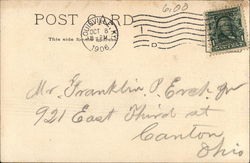 6.00
POST CARD
LOUISVILLE, KY.
OCT 8
1906
This side for the
Mr. Franklin P. Erck Jr
921 East Third st
Canton
Ohio